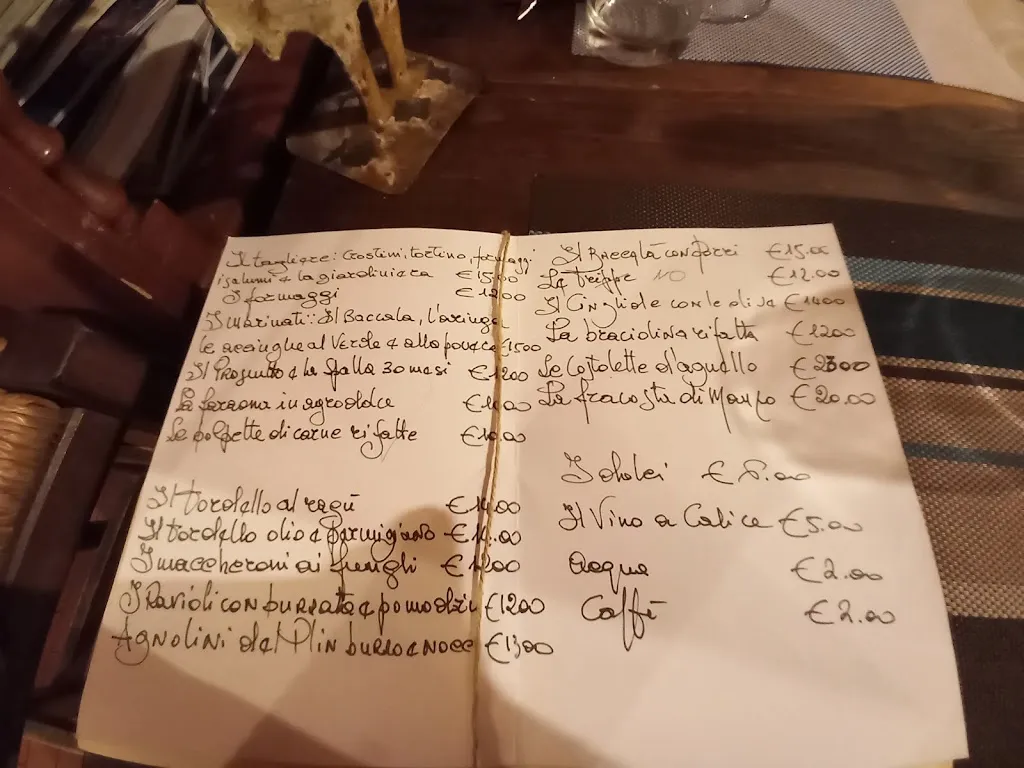 Il tagliere: Crostini, tortino, formaggi
i salumi e la giardiniera €15,00
I formaggi €12,00
I marinati: Il Baccalà, l'aringa
le acciughe al Verde e alla povera €15,00
Il Prosciutto e la spalla 30 mesi €12,00
La faraona in agrodolce
Le polpette di carne rifatte €10,00
Il tordello al ragù €14,00
Il tordello olio e parmigiano
I maccheroni ai funghi
I Ravioli con burrata e pomodori €12,00
Agnolini del Plin burro e noce €13,00
Il Baccalà con porri €15.00
La Trippa NO €12.00
Il Cinghiale con le olive €14,00
La braciolina rifatta €12,00
Le Costolette d'agnello
La fracosta di Manzo €20.00
I dolci
Il Vino a Calice €5.00
Acqua €2.00
Caffè €2.00